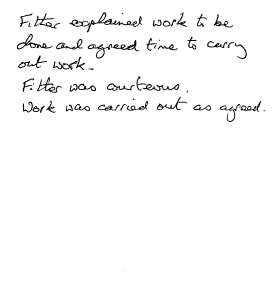 Fitter explained work to be
done and agreed time to carry
out work.
Fitter was courteous.
Work was carried out as agreed.